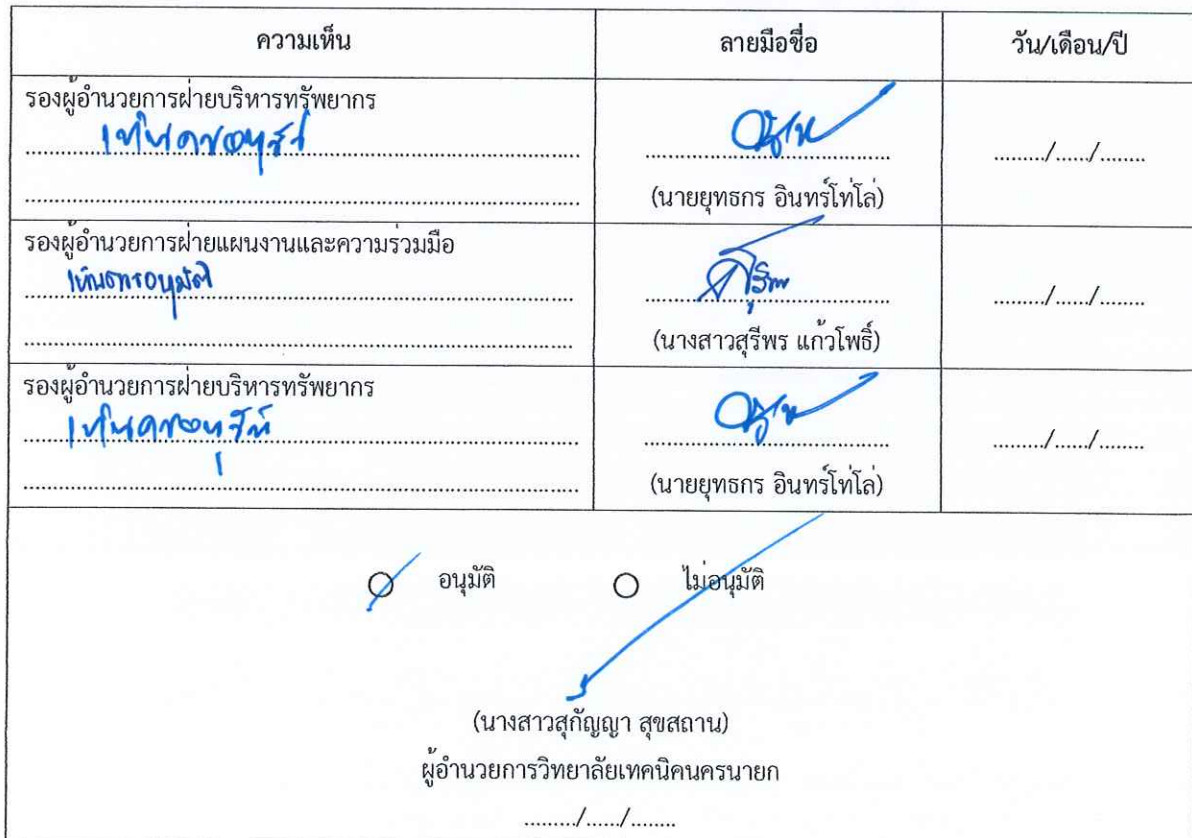 ความเห็น ลายมือชื่อ วัน/เดือน/ปี
รองผู้อำนวยการฝ่ายบริหารทรัพยากร
เห็นควรอนุมัติ
......../....../........
(นายยุทธกร อินทร์โท่โล่)
รองผู้อำนวยการฝ่ายแผนงานและความร่วมมือ
เห็นควรอนุมัติ
......../....../........
(นางสาวสุรีพร แก้วโพธิ์)
รองผู้อำนวยการฝ่ายบริหารทรัพยากร
เห็นควรอนุมัติ
......../....../........
(นายยุทธกร อินทร์โท่โล่)
อนุมัติ ไม่อนุมัติ
(นางสาวสุกัญญา สุขสถาน)
ผู้อำนวยการวิทยาลัยเทคนิคนครนายก
......../....../........